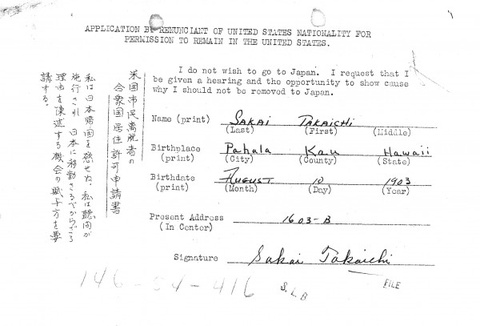 APPLICATION BY RENUNCIANT OF UNITED STATES NATIONALITY FOR
PERMISSION TO REMAIN IN THE UNITED STATES.
米国市民離脱者の
合衆国居住許可申請書
私は日本帰国を慾せず、私は聴問が
施行され日本に移動さるべからざる
理由を陳述する機会の賦与方を要
請する。
I do not wish to go to Japan. I request that I
be given a hearing and the opportunity to show cause
why I should not be removed to Japan.
Name (print) SAKAI TAKAICHI
(Last) (First) (Middle)
Birthplace Pahala Kau Hawaii
(print) (City) (County) (State)
Birthdate AUGUST 10 1903
(print) (Month) (Day) (Year)
Present Address 1603-B
(In Center)
Signature Sakai Takaichi
146-54-416 S.L.B FILE